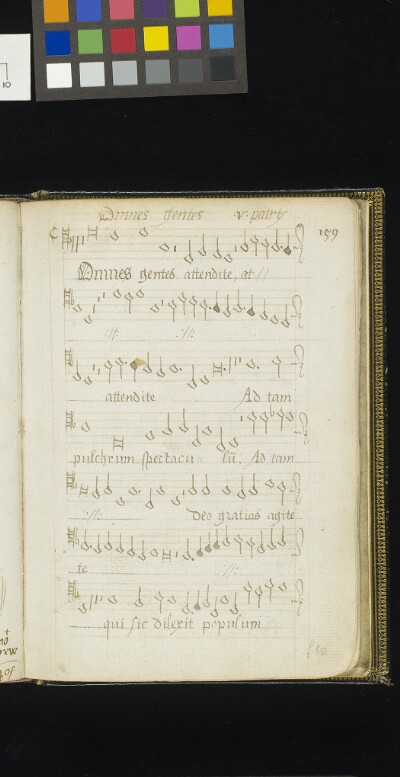 Omnes gentes v. partes
159
Omnes gentes attendite, at //
:/: :/:
attendite Ad tam
pulchrum spectacu lū. Ad tam
:/: deo gratias agite
te :/:
qui sic dilexit populum